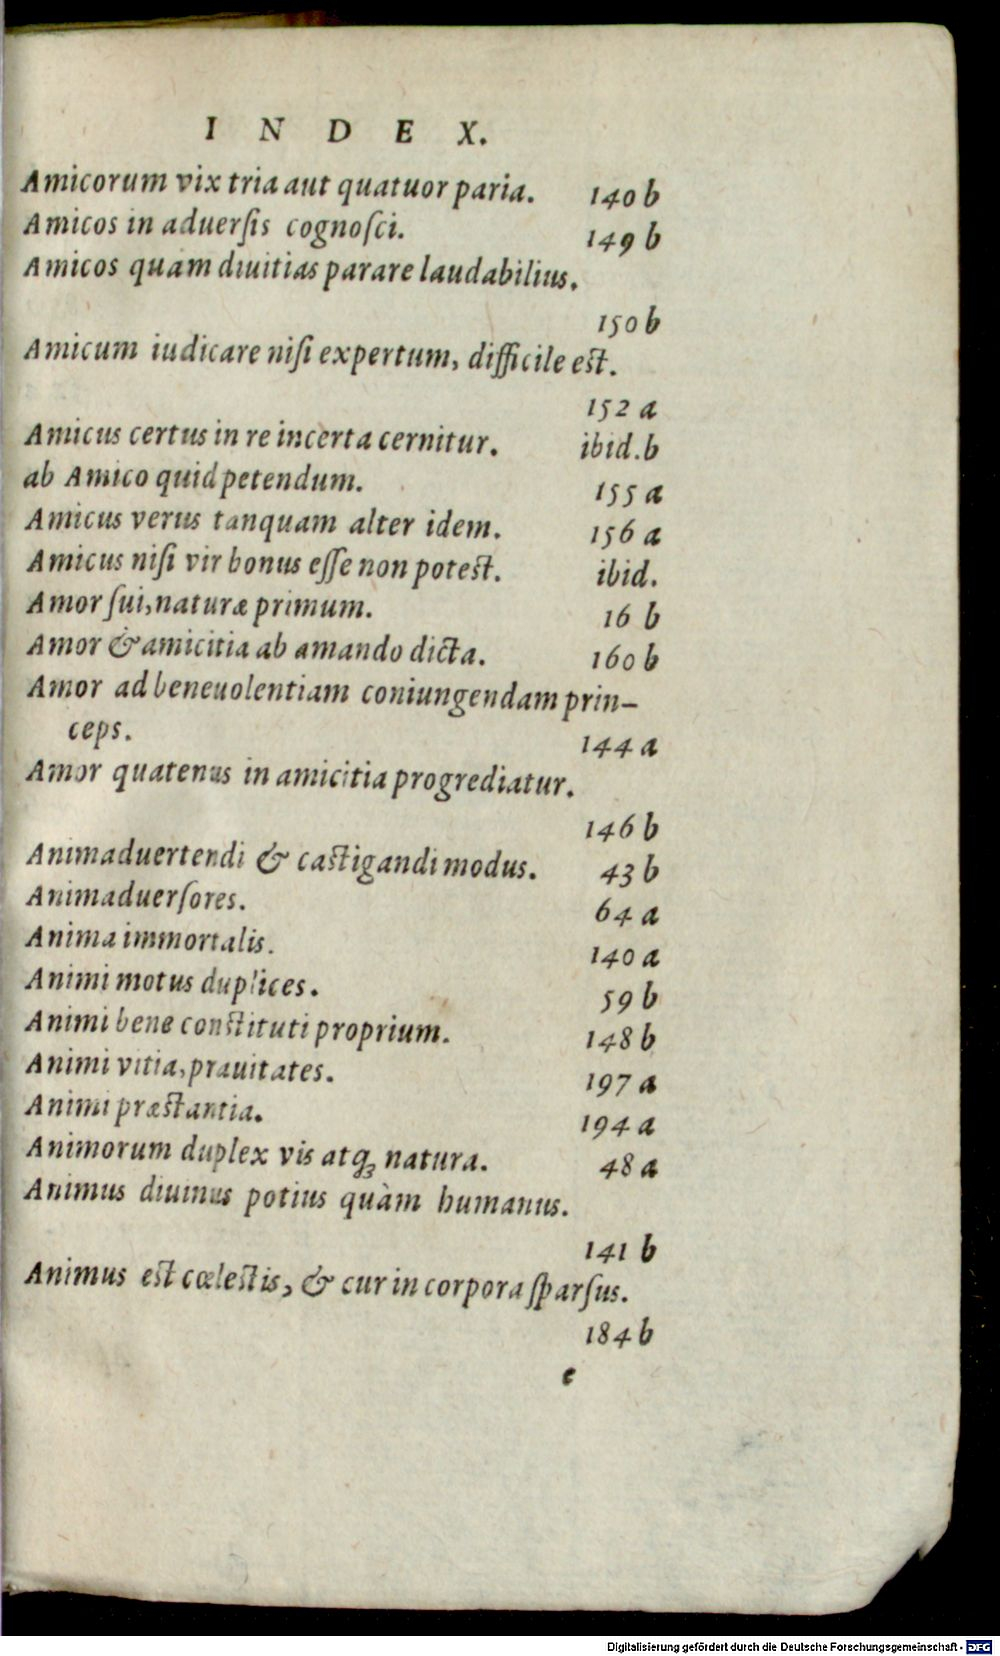 INDEX.
Amicorum vix tria aut quatuor paria. 140 b
Amicos in aduerſis cognoſci. 149 b
Amicos quàm diuitias parare laudabilius.
150 b
Amicum iudicare niſi expertum, difficile est.
152 a
Amicus certus in re incerta cernitur. ibid. b
ab Amico quid petendum. 155 a
Amicus verus tanquam alter idem. 156 a
Amicus niſi vir bonus eſſe non potest. ibid.
Amor ſui, naturæ primum. 16 b
Amor & amicitia ab amando dicta. 160 b
Amor ad beneuolentiam coniungendam prin-
ceps. 144 a
Amor quatenus in amicitia progrediatur.
146 b
Animaduertendi & castigandi modus. 43 b
Animaduerſores. 64 a
Anima immortalis. 140 a
Animi motus duplices. 59 b
Animi bene constituti proprium. 148 b
Animi vitia, prauitates. 197 a
Animi præstantia. 194 a
Animorum duplex vis atq; natura. 48 a
Animus diuinus potius quàm humanus.
141 b
Animus est cœlestis, & cur in corpora ſparſus.
184 b
e
Digitalisierung gefördert durch die Deutsche Forschungsgemeinschaft - DFG